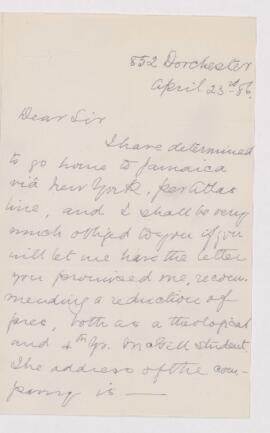 852 Dorchester
April 23rd 86.
Dear Sir
I have determined
to go home to Jamaica
viâ New York, per Atlas
line, and I shall be very
much obliged to you if you
will let me have the letter
you promised me, recom-
mending a reduction of
fares, both as a theological
and 4th Yr. McGill student.
The address of the com-
pany is —